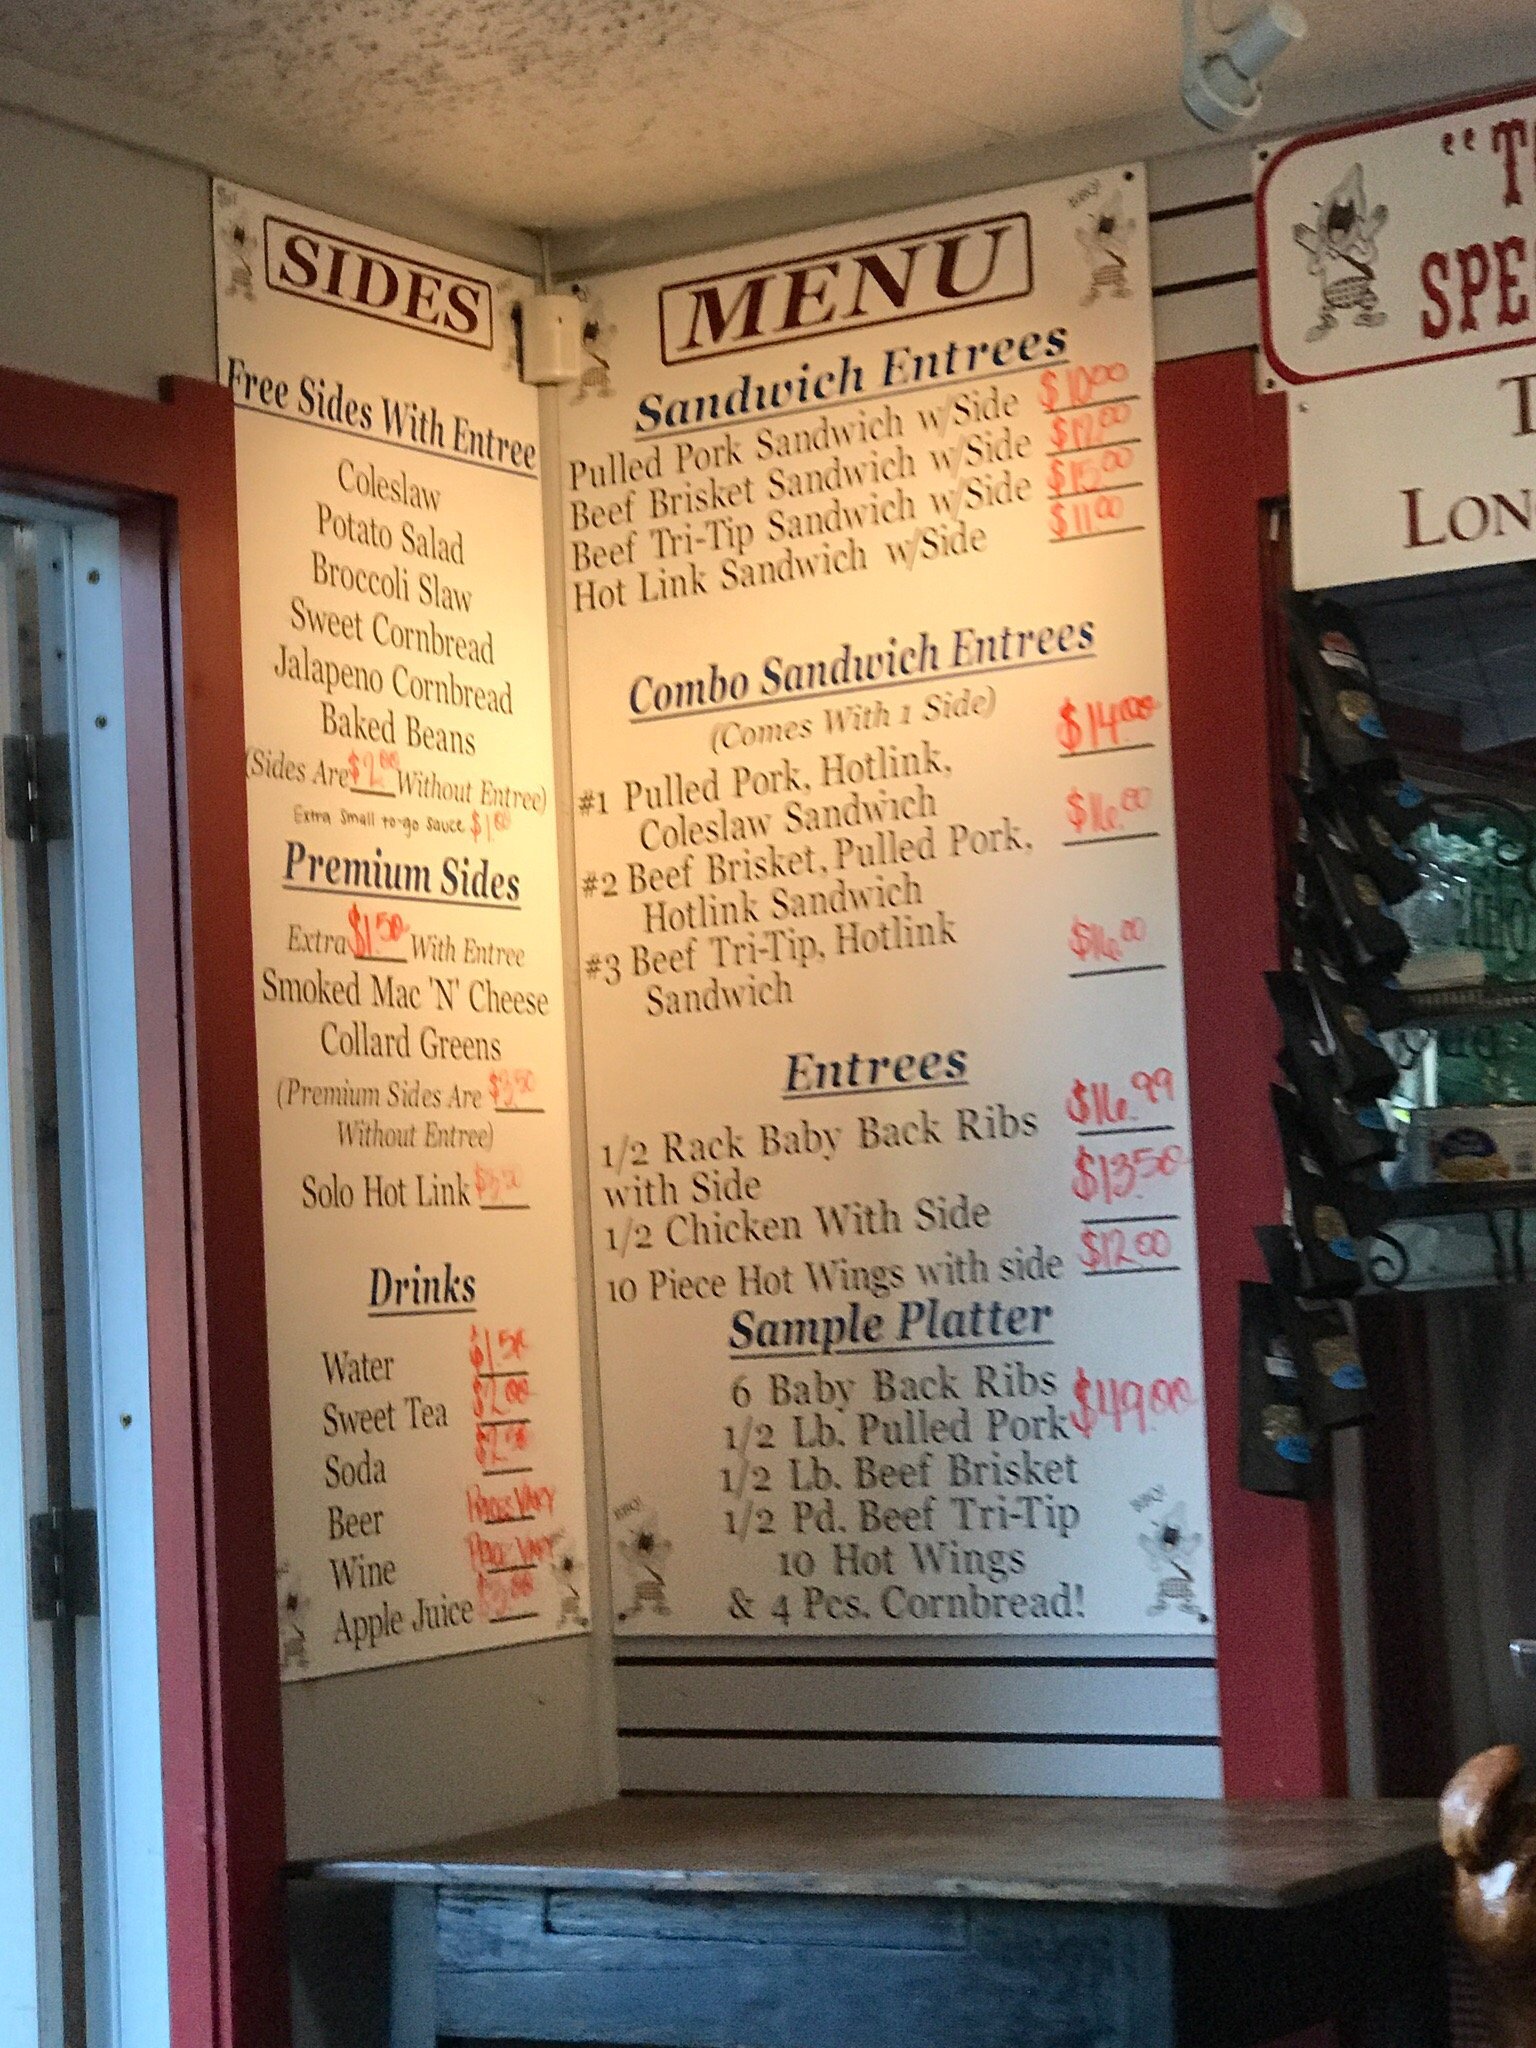 SIDES
Free Sides With Entree
Coleslaw
Potato Salad
Broccoli Slaw
Sweet Cornbread
Jalapeno Cornbread
Baked Beans
(Sides Are $2.00 Without Entree)
Extra Small to-go sauce $1.00
Premium Sides
Extra $1.50 With Entree
Smoked Mac 'N' Cheese
Collard Greens
(Premium Sides Are $3.50
Without Entree)
Solo Hot Link
Drinks
Water $1.50
Sweet Tea $2.00
Soda
Beer Prices Vary
Wine Price Vary
Apple Juice
BBQ!
MENU
Sandwich Entrees
Pulled Pork Sandwich w/Side $10.00
Beef Brisket Sandwich w/Side $12.00
Beef Tri-Tip Sandwich w/Side $15.00
Hot Link Sandwich w/Side $11.00
Combo Sandwich Entrees
(Comes With 1 Side)
#1 Pulled Pork, Hotlink, $14.00
Coleslaw Sandwich
#2 Beef Brisket, Pulled Pork, $16.00
Hotlink Sandwich
#3 Beef Tri-Tip, Hotlink $16.00
Sandwich
Entrees
1/2 Rack Baby Back Ribs $16.99
with Side
1/2 Chicken With Side $13.50
10 Piece Hot Wings with side $12.00
Sample Platter
6 Baby Back Ribs $49.00
1/2 Lb. Pulled Pork
1/2 Lb. Beef Brisket
1/2 Pd. Beef Tri-Tip
10 Hot Wings
& 4 Pcs. Cornbread!
BBQ!
BBQ!
"T
SPE
T
LON